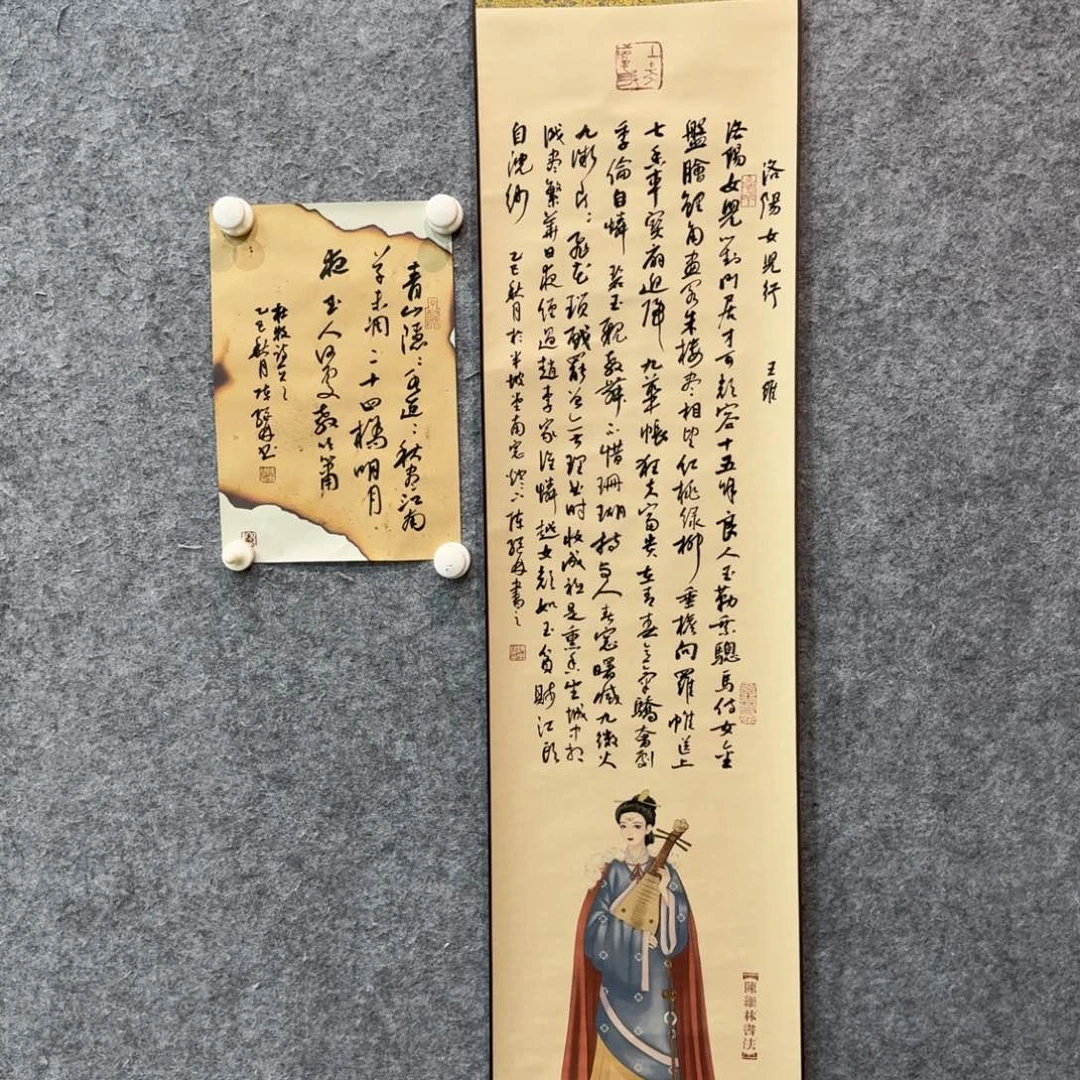 洛陽女兒行 王維
洛陽女兒對門居才可顏容十五餘良人玉勒乘驄馬侍女金
盤膾鯉魚畫閣朱樓盡相望紅桃綠柳垂檐向羅帷送上
七香車寶扇迎歸九華帳狂夫富貴在青春意氣驕奢劇
季倫自憐碧玉親教舞不惜珊瑚持與人春窗曙滅九微火
九微片〻飛花璅戲罷曾無理曲時妝成祗是熏香坐城中相
識盡繁華日夜經過趙李家誰憐越女顏如玉貧賤江頭
自浣紗 乙巳秋月於半坡堂南窗燈下陳繼林書之
【陳繼林書法】
青山隱〻水迢〻秋盡江南
草未凋二十四橋明月
夜玉人何處教吹簫
杜牧詩
乙巳秋月陳繼林書